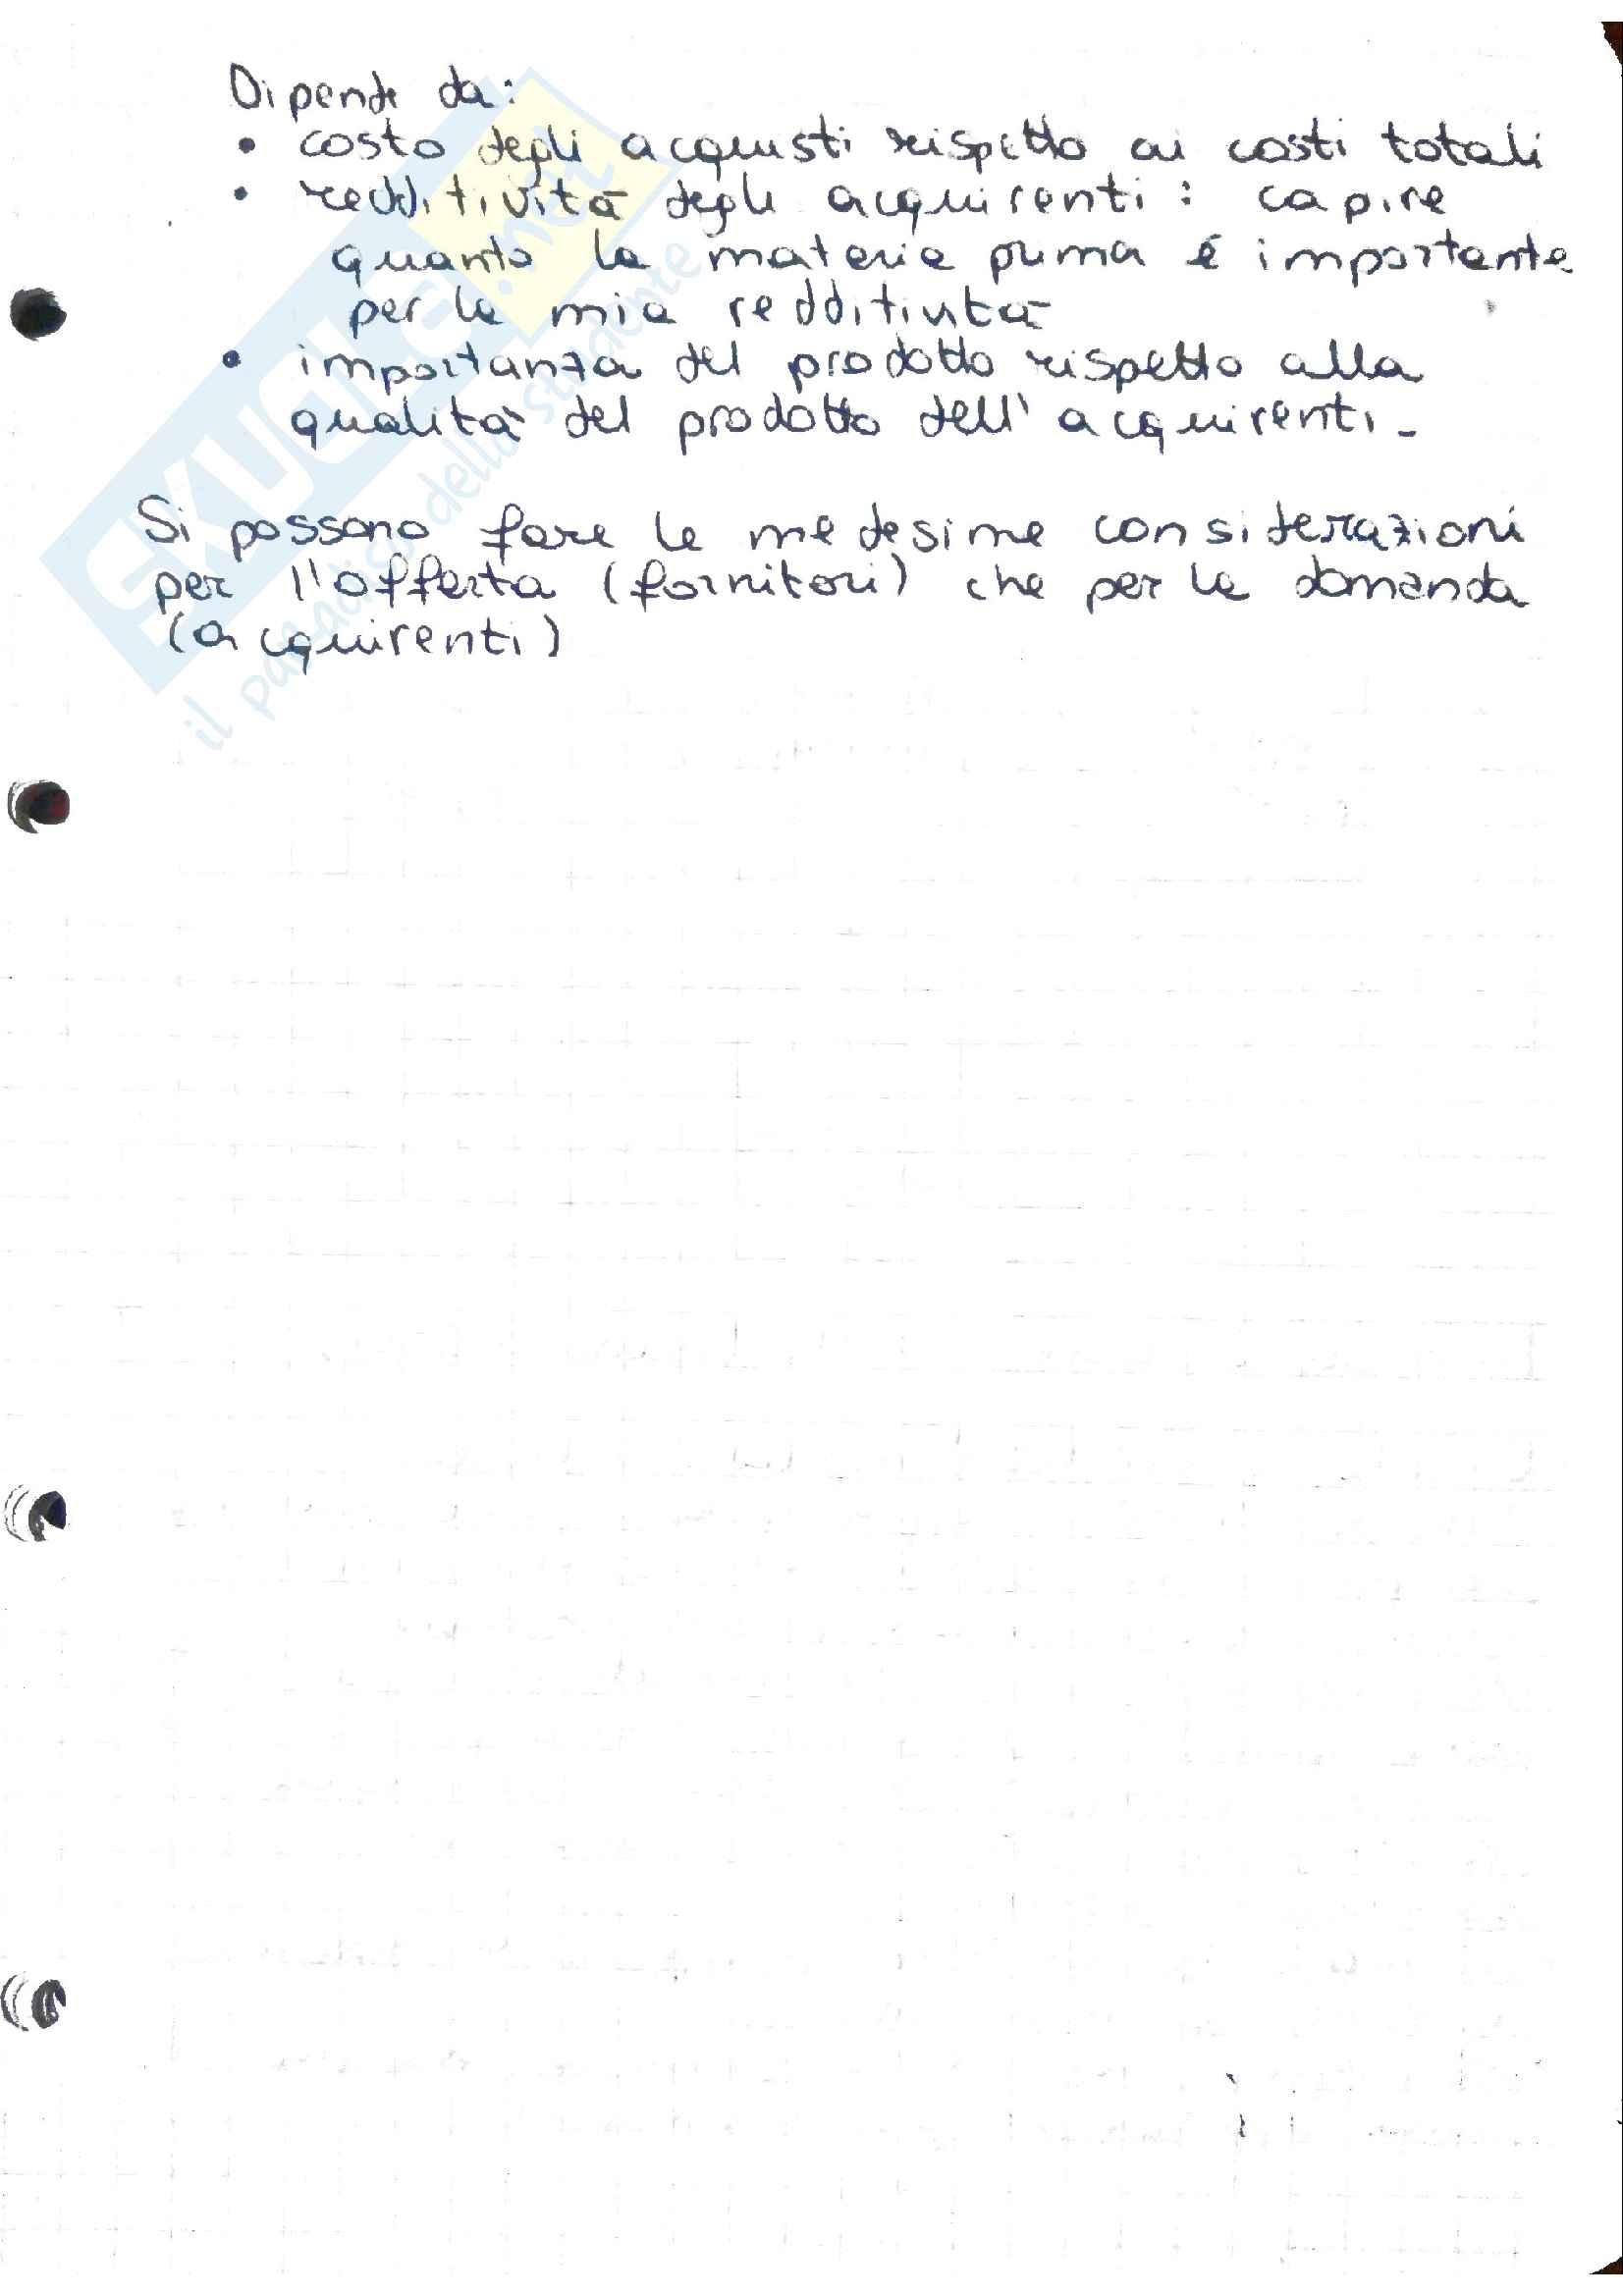 Dipende da:
• costo degli acquisti rispetto ai costi totali
• redditività degli acquirenti: capire
quanto la materia prima è importante
per la mia redditività
• importanza del prodotto rispetto alla
qualità del prodotto dell'acquirenti.
Si possono fare le medesime considerazioni
per l'offerta (fornitori) che per la domanda
(acquirenti)
SKUOLA.net
il paradiso dello studente